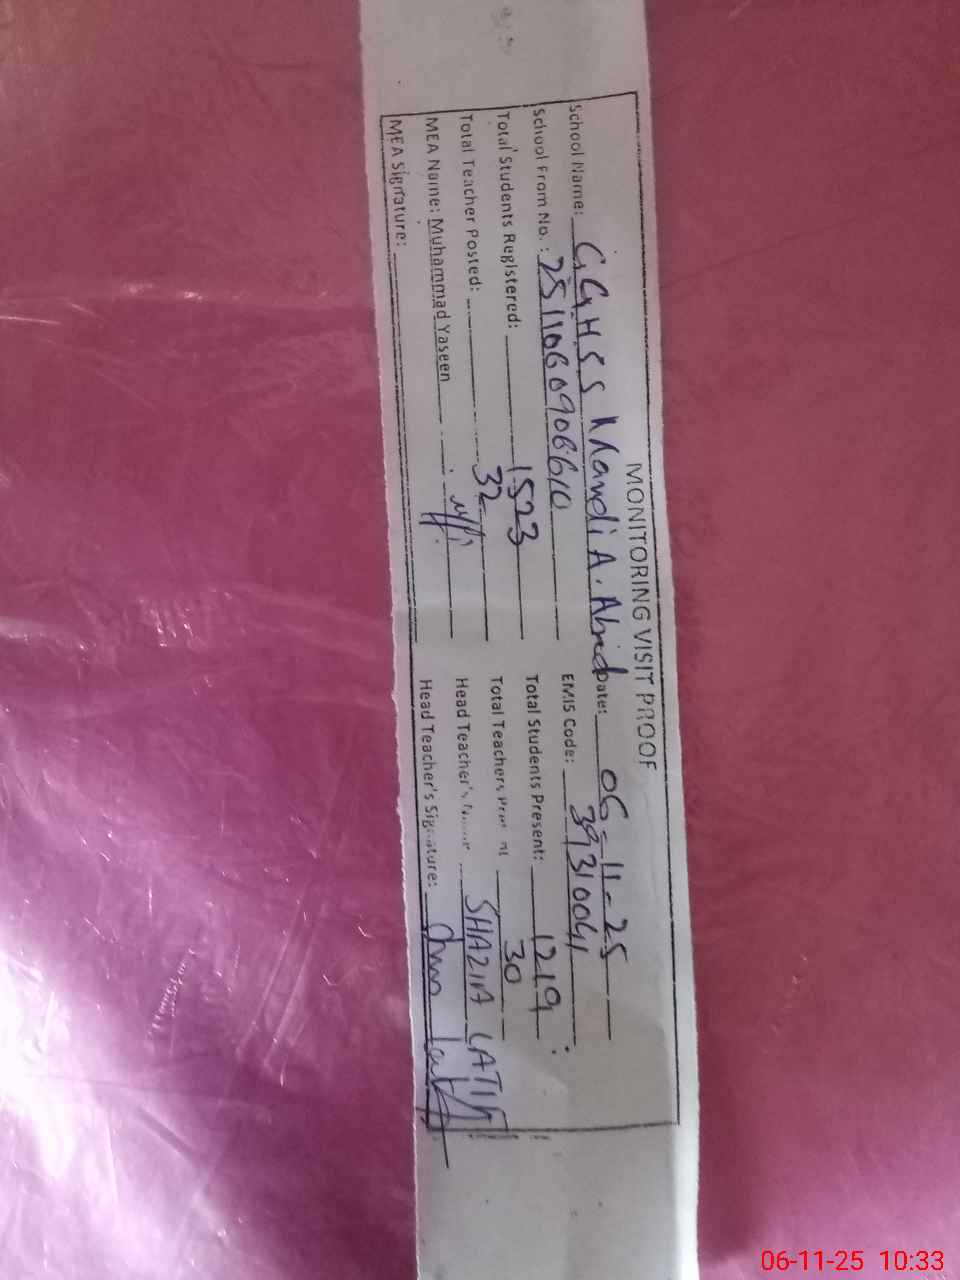 MONITORING VISIT PROOF
School Name: GGHSS A. Abad Date: 06-11-25
School From No.: EMIS Code: 39310041
Total Students Registered: 1523 Total Students Present: 1219
Total Teacher Posted: 32 Total Teachers Present 30
MEA Name: Muhammad Yaseen Head Teacher's Name SHAZIA LATIF
MEA Signature: Head Teacher's Signature:
06-11-25 10:33